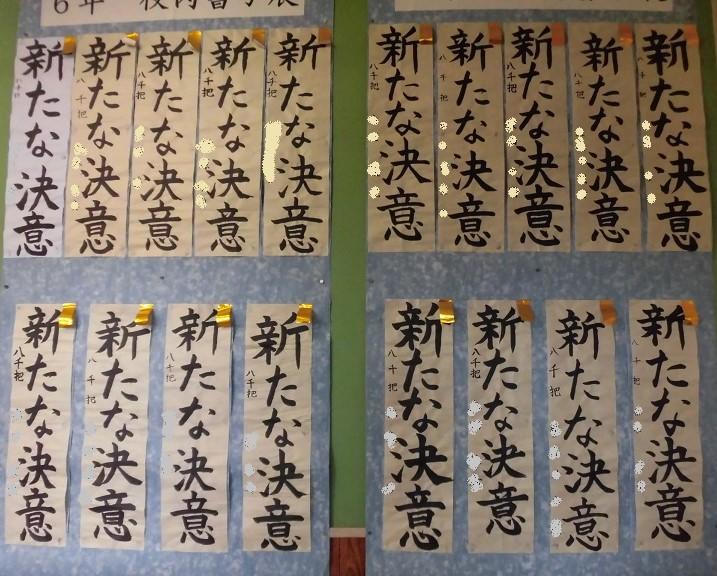 6年 校内書写展
新たな決意
八千把
新たな決意
八千把
新たな決意
八千把
新たな決意
八千把
新たな決意
新たな決意
八千把
新たな決意
八千把
新たな決意
八千把
新たな決意
八千把
新たな決意
新たな決意
八千把
新たな決意
八千把
新たな決意
八千把
新たな決意
八千把
新たな決意
八千把
新たな決意
八千把
新たな決意
八千把
新たな決意